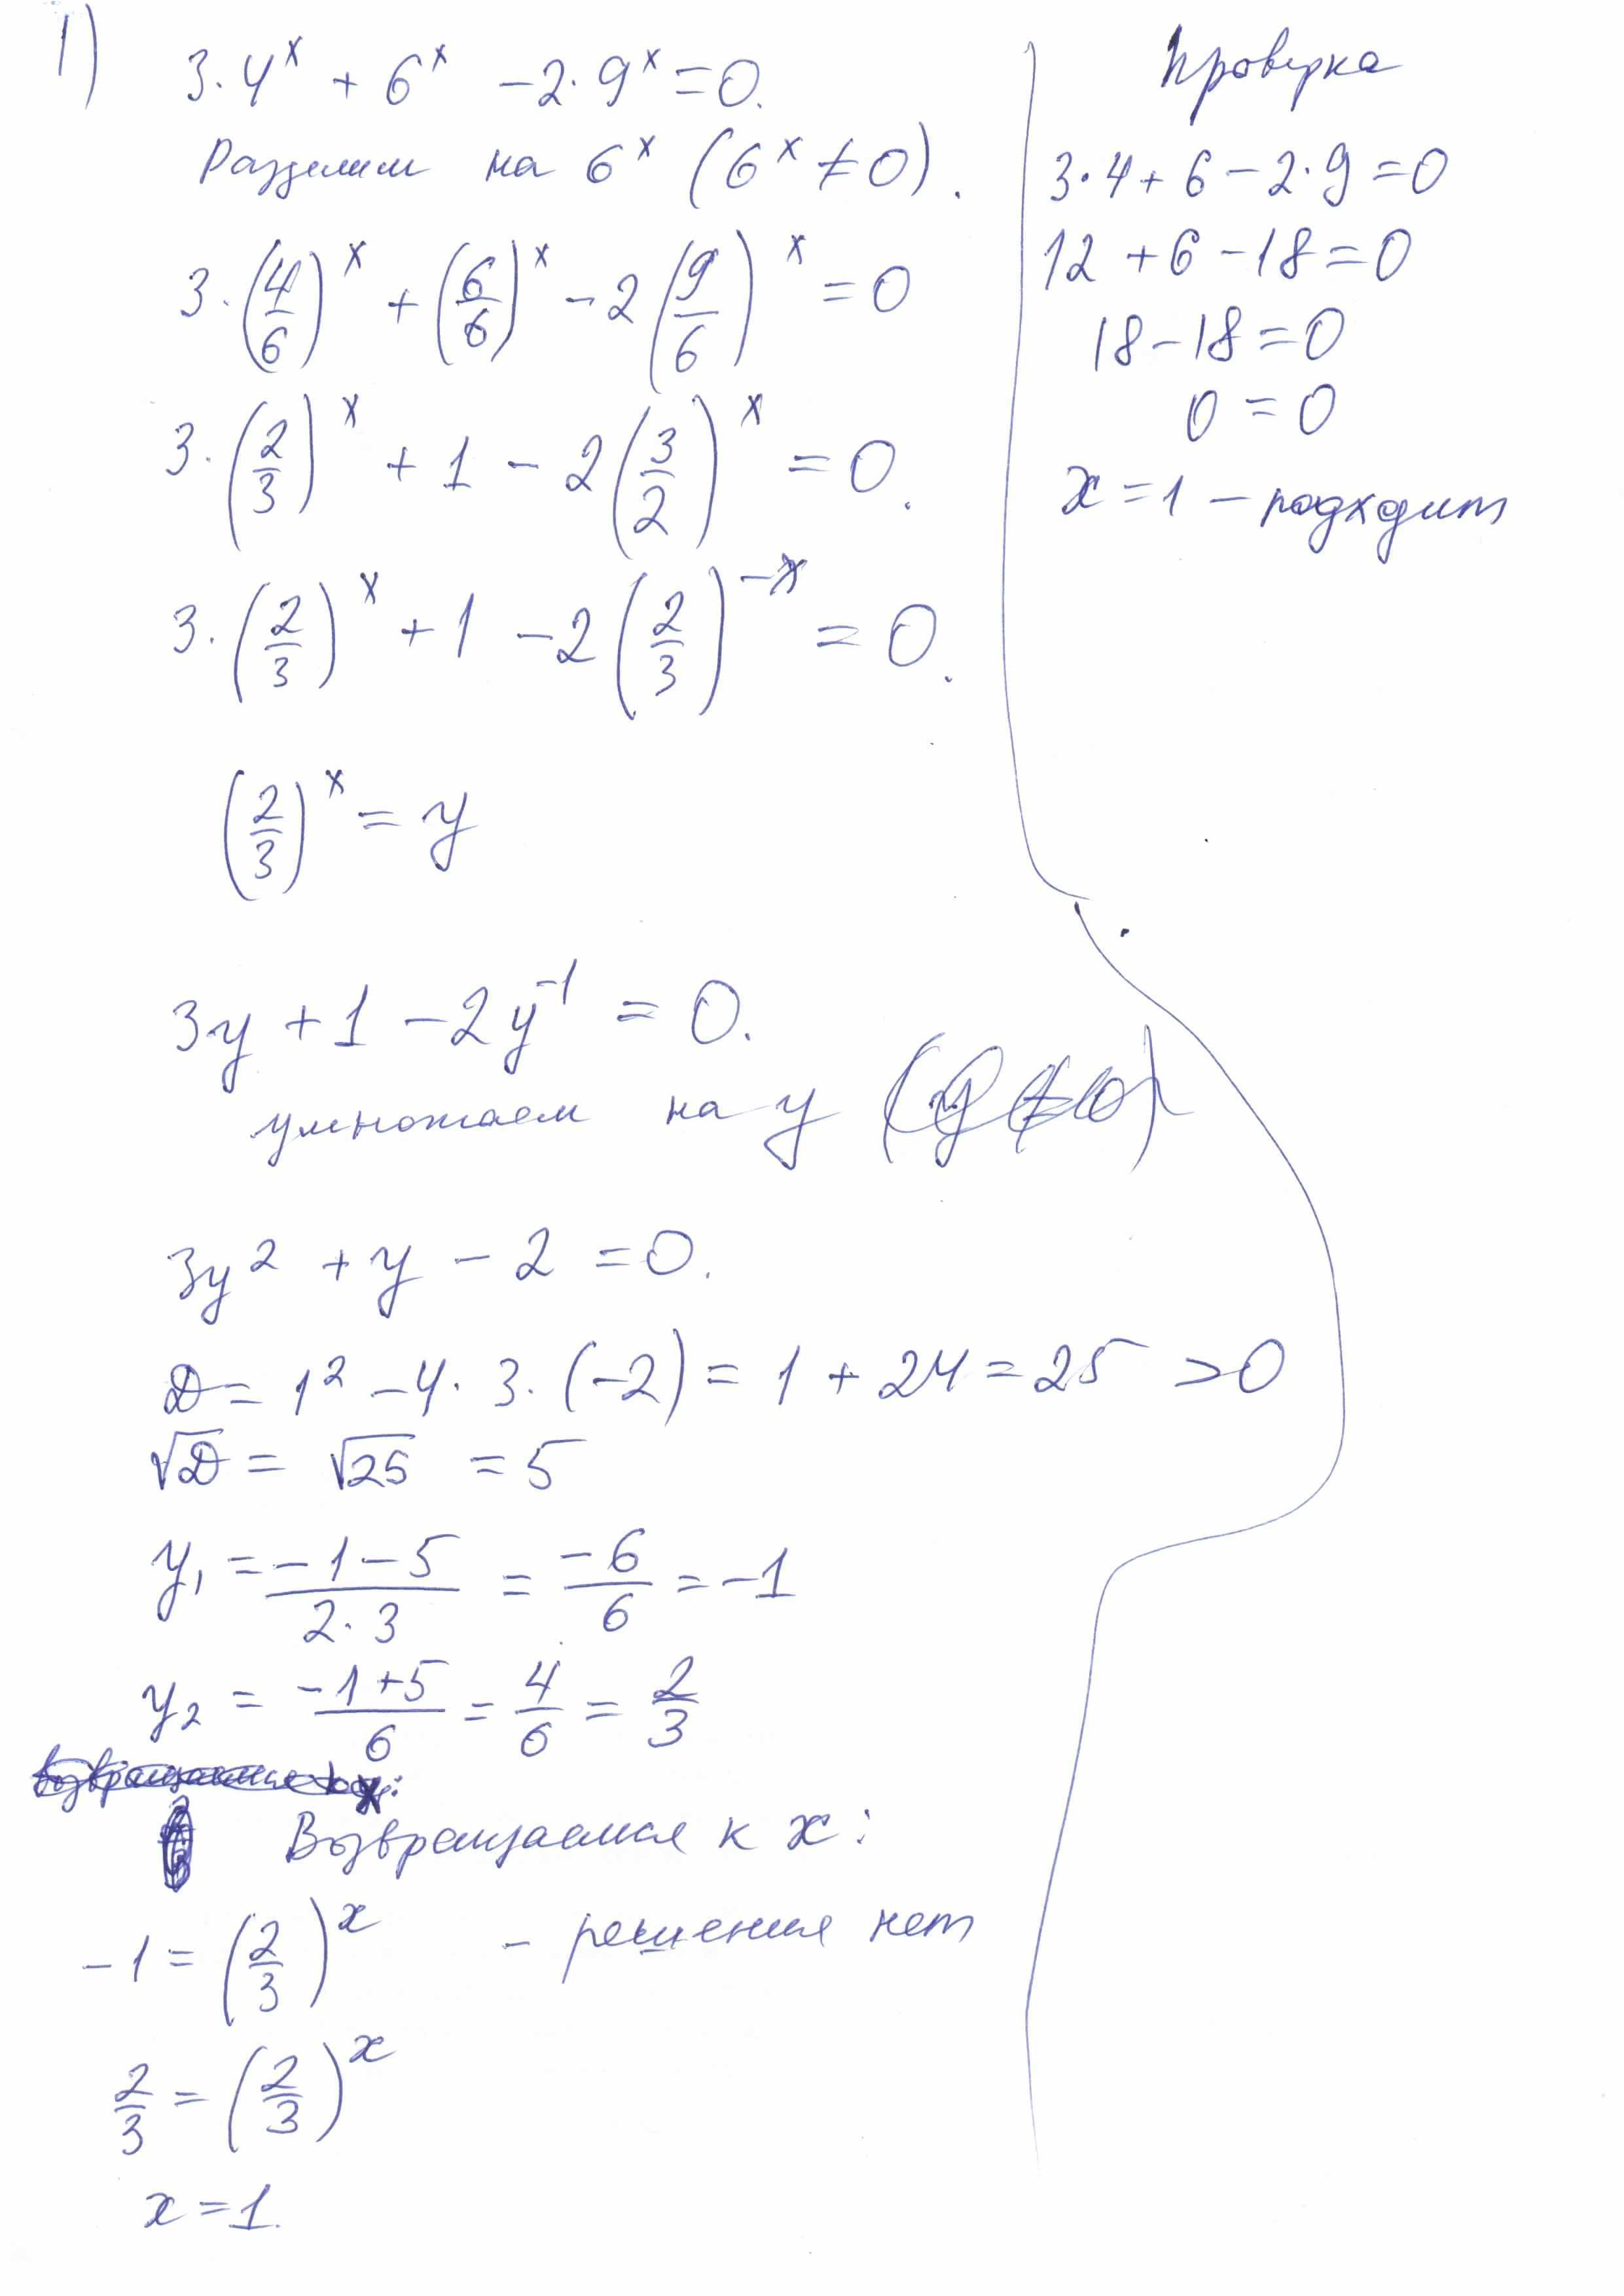 1)
3·4ˣ + 6ˣ - 2·9ˣ = 0.
Разделим на 6ˣ (6ˣ ≠ 0).
3·(4/6)ˣ + (6/6)ˣ - 2(9/6)ˣ = 0
3·(2/3)ˣ + 1 - 2(3/2)ˣ = 0.
3·(2/3)ˣ + 1 - 2(2/3)⁻ˣ = 0.
(2/3)ˣ = y
3y + 1 - 2y⁻¹ = 0.
умножаем на y
3y² + y - 2 = 0.
D = 1² - 4·3·(-2) = 1 + 24 = 25 > 0
√D = √25 = 5
y₁ = (-1-5)/(2·3) = -6/6 = -1
y₂ = (-1+5)/6 = 4/6 = 2/3
Возвращаемся к x:
-1 = (2/3)ˣ - решения нет
2/3 = (2/3)ˣ
x = 1.
Проверка
3·4 + 6 - 2·9 = 0
12 + 6 - 18 = 0
18 - 18 = 0
0 = 0
x = 1 - подходит